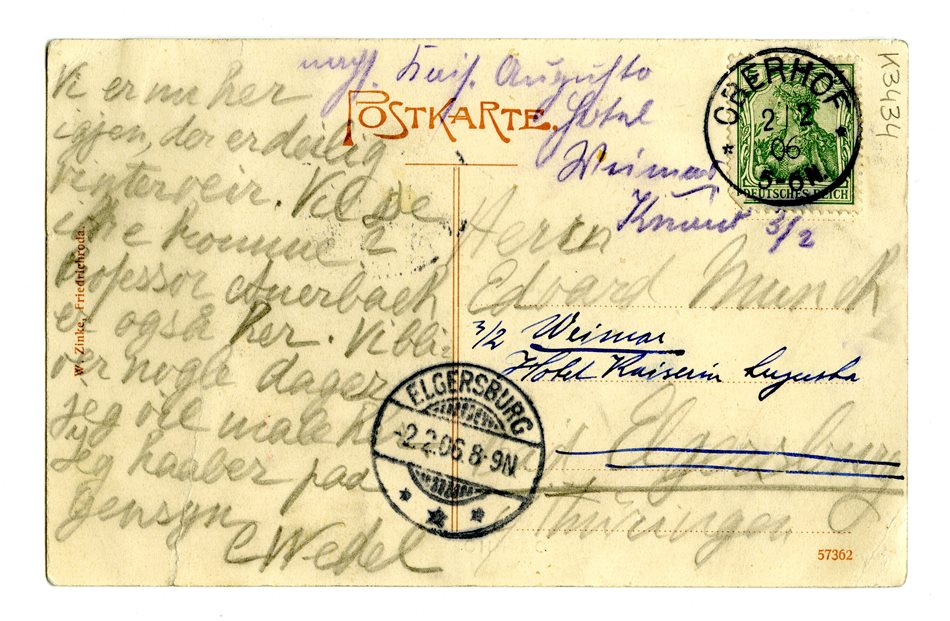 Vi er nu her
igjen, der er deilig
Vinterveir. Vil De
ikke komme?
Professor Auerbach
er også her. Vi bli-
ver nogle dager
jeg vil male her
Jeg haaber paa
Gensyn
C Wedel
W. Zinke, Friedrichroda.
POSTKARTE.
Kais. Augusta
Hotel
Weimar
Knaut 3/2
OBERHOF
2 2
06
DEUTSCHES REICH
K3434
Herrn
Edvard Munch
3/2 Weimar
Hôtel Kaiserin Augusta
Elgersburg
Thüringen
ELGERSBURG
-2.2.06 8-9N
57362